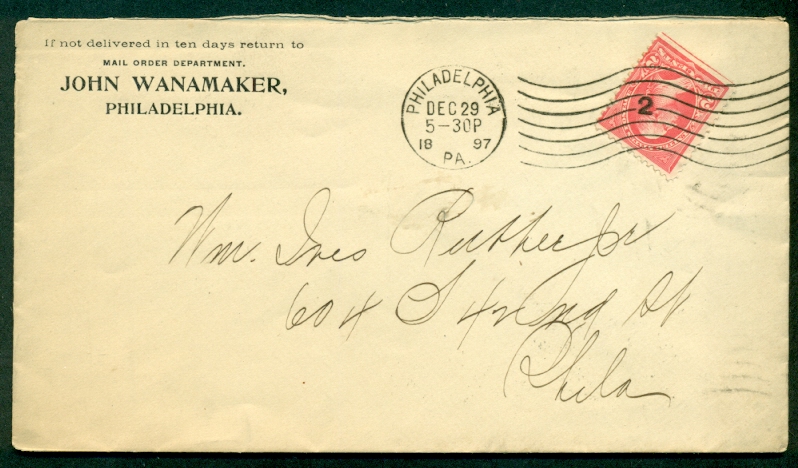 If not delivered in ten days return to
MAIL ORDER DEPARTMENT.
JOHN WANAMAKER,
PHILADELPHIA.
PHILADELPHIA
DEC 29
5-30P
18 97
PA.
2
Wm. Ives Rutter Jr
604 S 42nd St
Phila